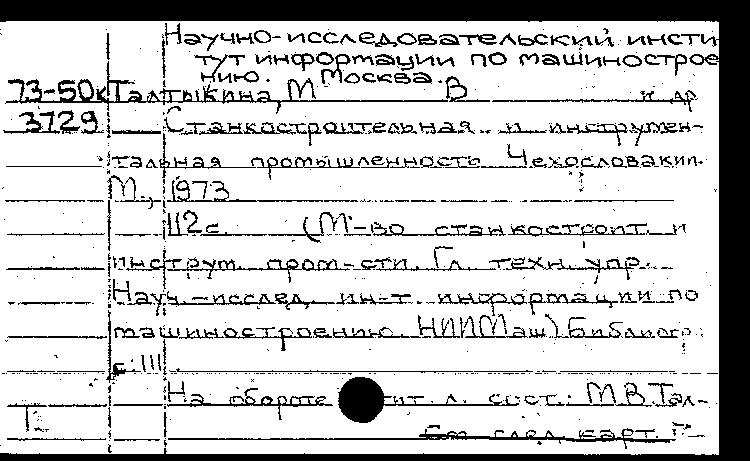 Научно-исследовательский инсти
тут информации по машинострое
нию. Москва.
73-50к Талтыкина, М В и др
3729 Станкостроительная и инструмен-
тальная промышленность Чехословакии.
М., 1973
112 с. (М-во станкостроит. и
инструм. пром-сти. Гл. техн. упр.
Науч.-исслед. ин-т. информации по
машиностроению. НИИМаш) Библиогр.:
с. 111.
На обороте тит. л. сост.: М.В. Тал-
См. след. карт.